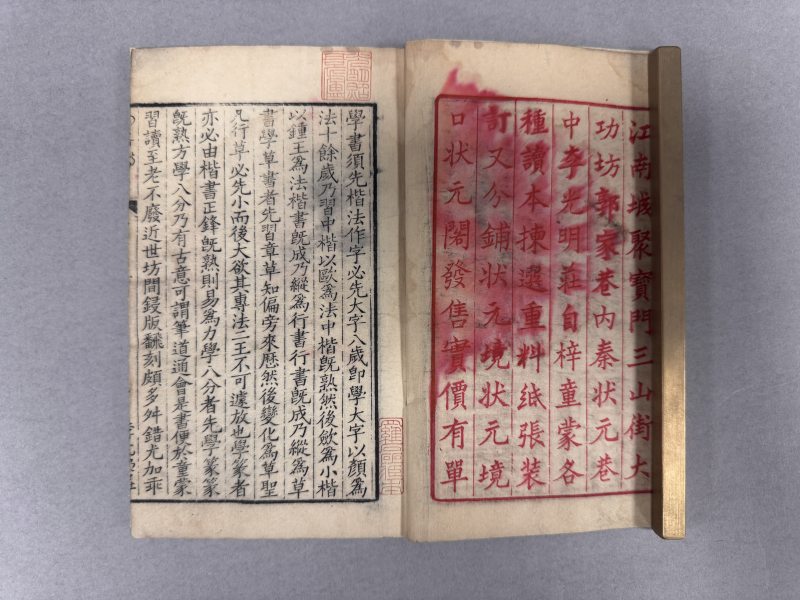 江南城聚寶門三山街大
功坊郭家巷內秦狀元巷
中李光明莊自梓童蒙各
種讀本揀選重料紙張裝
訂又分鋪狀元境狀元境
口狀元閣發售實價有單
學書須先楷法作字必先大字八歲卽學大字以顏爲
法十餘歲乃習中楷以歐爲法中楷旣熟然後斂爲小楷
以鍾王爲法楷書旣成乃縱爲行書行書旣成乃縱爲草
書學草書者先習章草知偏旁來歷然後變化爲草聖
凡行草必先小而後大欲其專法二王不可遽放也學篆者
亦必由楷書正鋒旣熟則易爲力學八分者先學篆篆
旣熟方學八分乃有古意可謂筆道通會是書便於童蒙
習讀至老不廢近世坊間鋟版飜刻頗多舛錯尤加乖